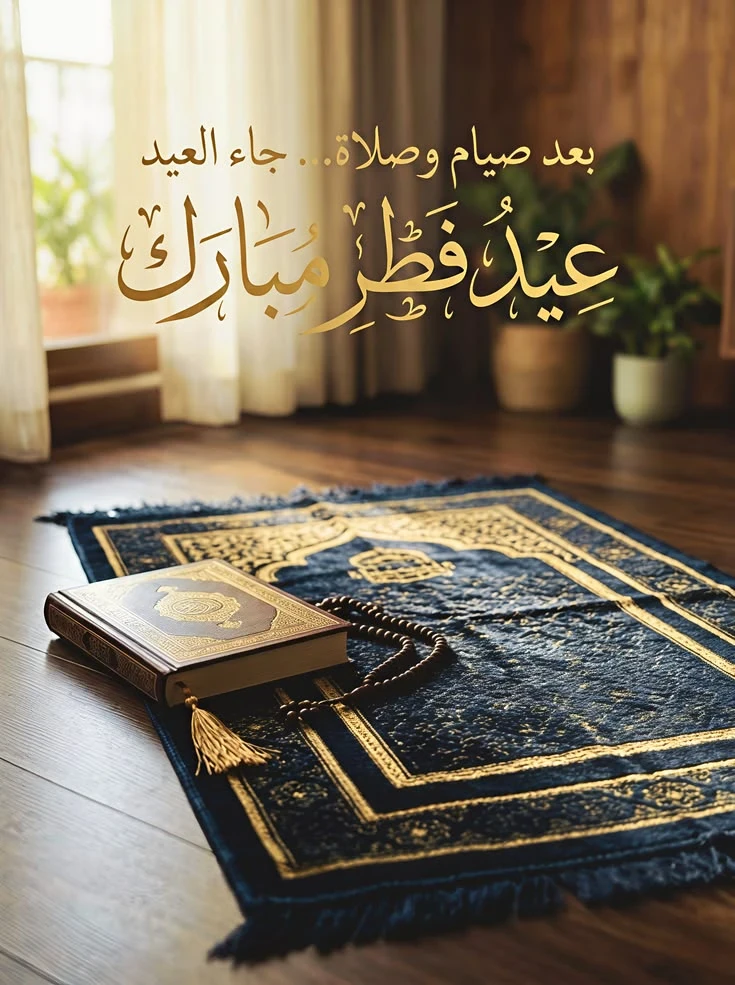 بعد صيام وصلاة... جاء العيد
عِيْدُ فَطْرٍ مُبَارَك